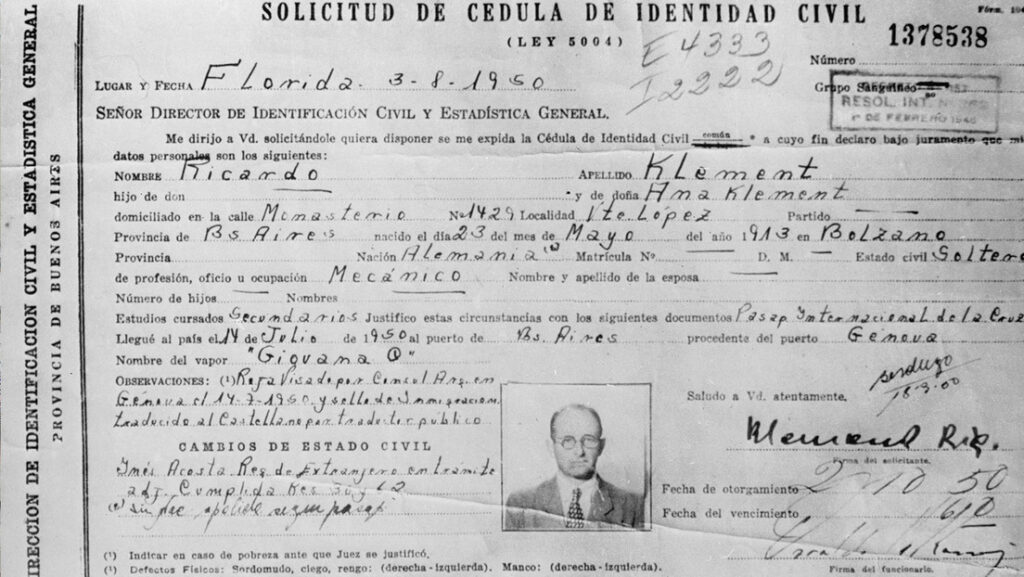 DIRECCION DE IDENTIFICACION CIVIL Y ESTADISTICA GENERAL
PROVINCIA DE BUENOS AIRES
SOLICITUD DE CEDULA DE IDENTIDAD CIVIL
(LEY 5004)
Fórm.
1378538
E 4333
I 2222
Número
Grupo Sanguíneo
RESOL. INT. Nº
1º DE FEBRERO 1946
LUGAR Y FECHA Florida. 3-8-1950
SEÑOR DIRECTOR DE IDENTIFICACIÓN CIVIL Y ESTADÍSTICA GENERAL.
Me dirijo a Vd. solicitándole quiera disponer se me expida la Cédula de Identidad Civil común * a cuyo fin declaro bajo juramento que mi
datos personales son los siguientes:
NOMBRE Ricardo APELLIDO Klement
hijo de don y de doña Ana Klement
domiciliado en la calle Monasterio Nº 1429 Localidad Vte. López Partido
Provincia de Bs Aires nacido el día 23 del mes de Mayo del año 1913 en Bolzano
Provincia Nación Alemania Matrícula Nº D. M. Estado civil Soltero
de profesión, oficio u ocupación Mecánico Nombre y apellido de la esposa
Número de hijos Nombres
Estudios cursados Secundarios Justifico estas circunstancias con los siguientes documentos Pasap Internacional de la Cruz
Llegué al país el 14 de Julio de 1950 al puerto de Bs. Aires procedente del puerto Génova
Nombre del vapor "Giovana C"
OBSERVACIONES: (¹) Roja Visado por Consul Arg. en
Génova el 14-7-1950 y sello de Inmigracion
traducido al Castellano por traductor público
CAMBIOS DE ESTADO CIVIL
Inés Acosta Reg. de Extranjero en tramite
Saludo a Vd. atentamente.
Klement Ric.
Firma del solicitante.
Fecha de otorgamiento 2 10 50
Fecha del vencimiento
Firma del funcionario.
(¹) Indicar en caso de pobreza ante que Juez se justificó.
(¹) Defectos Físicos: Sordomudo, ciego, rengo: (derecha-izquierda). Manco: (derecha-izquierda).